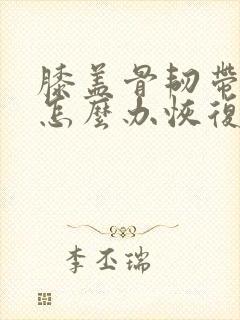 膝盖骨韧带
怎麼办恢復
李丕瑞